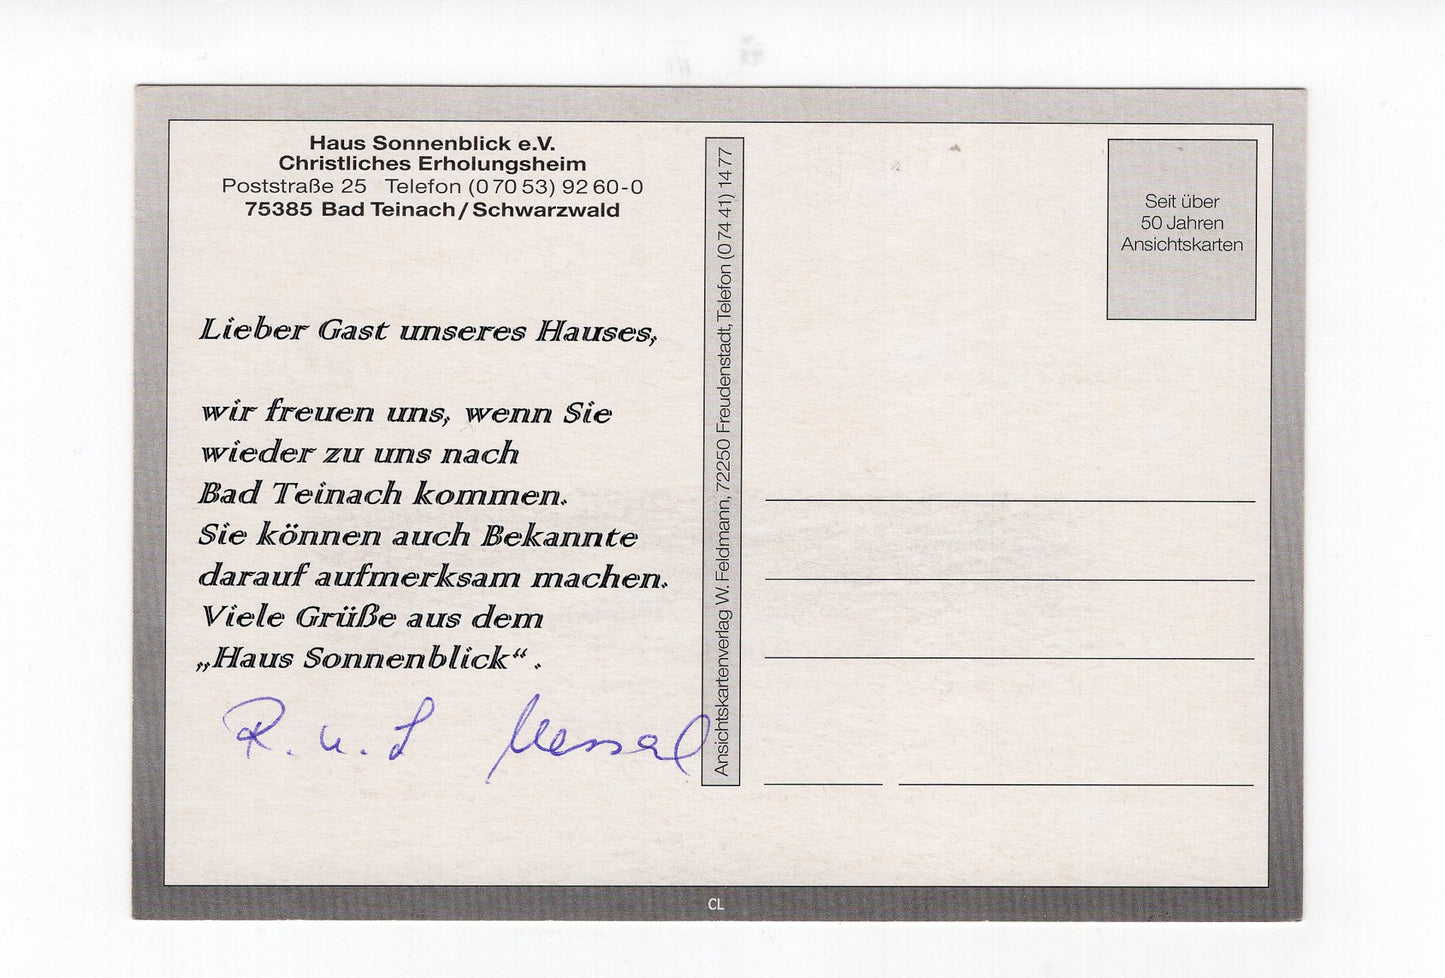 Haus Sonnenblick e.V.
Christliches Erholungsheim
Poststraße 25 Telefon (0 70 53) 92 60-0
75385 Bad Teinach/Schwarzwald
Lieber Gast unseres Hauses,
wir freuen uns, wenn Sie
wieder zu uns nach
Bad Teinach kommen.
Sie können auch Bekannte
darauf aufmerksam machen.
Viele Grüße aus dem
„Haus Sonnenblick“.
R. u. L
Ansichtskartenverlag W. Feldmann, 72250 Freudenstadt, Telefon (0 74 41) 14 77
Seit über
50 Jahren
Ansichtskarten
CL